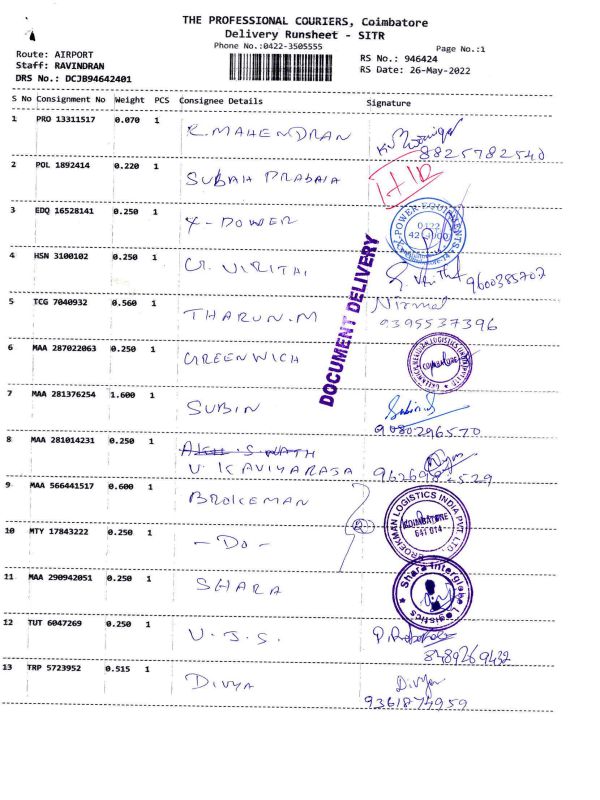 THE PROFESSIONAL COURIERS, Coimbatore
Delivery Runsheet - SITR
Phone No.:0422-3505555
Page No.:1
Route: AIRPORT
RS No.: 946424
Staff: RAVINDRAN
RS Date: 26-May-2022
DRS No.: DCJB94642401
S No Consignment No Weight PCS Consignee Details Signature
1 PRO 13311517 0.070 1 R. MAHENDRAN
8825782540
2 POL 1892414 0.220 1 SUBAH PRABAIA
3 EDQ 16528141 0.250 1 X-POWER
4 HSN 3100102 0.250 1 G. VIRITHI
9600385702
DOCUMENT DELIVERY
5 TCG 7040932 0.560 1 THARUN.M Nirmal
9395537396
6 MAA 287022063 0.250 1 GREENWICH
COIMBATORE
7 MAA 281376254 1.600 1 SUBIN
9080296570
8 MAA 281014231 0.250 1
V. KAVIYARASA 9626982529
9 MAA 566441517 0.600 1 BROKEMAN
BROEKMAN LOGISTICS INDIA PVT LTD.
COIMBATORE
641 014
10 MTY 17843222 0.250 1 - DO -
11 MAA 290942051 0.250 1 SHARA
Shara Interglobe Logistics
12 TUT 6047269 0.250 1 V. J. S.
8489269432
13 TRP 5723952 0.515 1 DIVYA Divya
9361874959